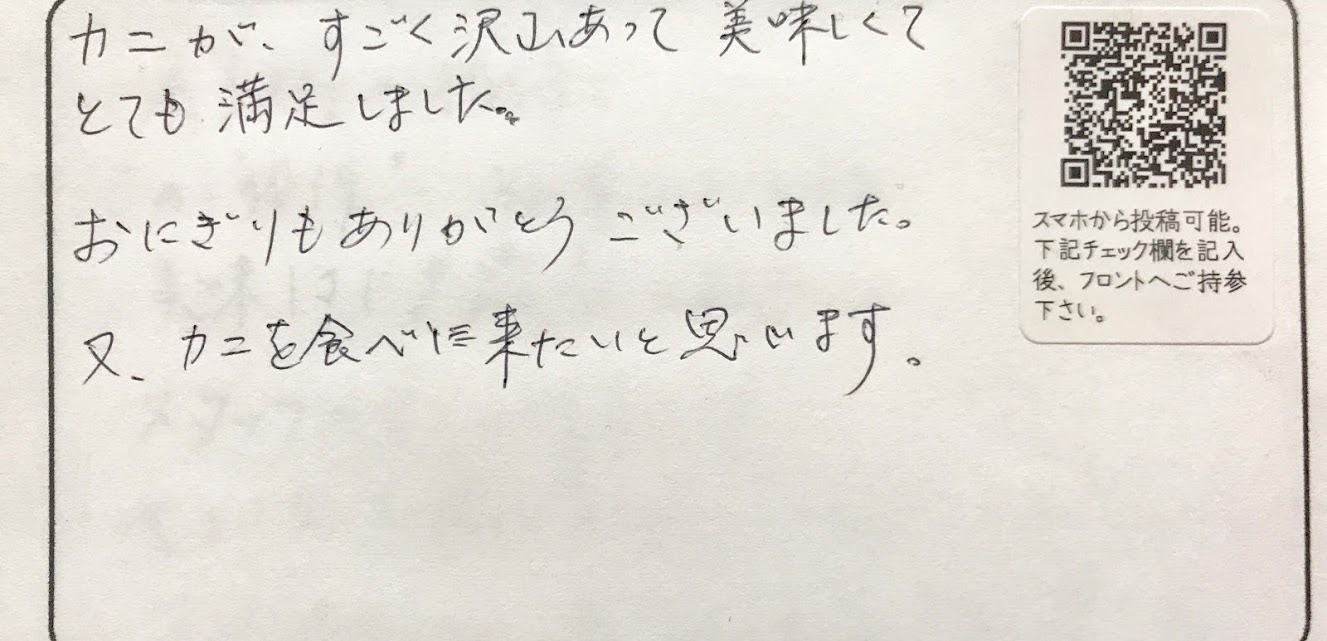 カニが、すごく沢山あって 美味しくて
とても 満足しました。
おにぎりもありがとう ございました。
又、カニを食べに来たいと思います。
スマホから投稿可能。
下記チェック欄を記入
後、フロントへご持参
下さい。